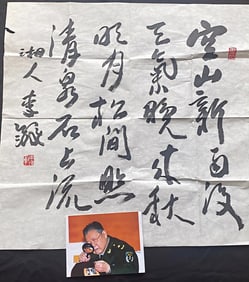 空山新雨後
天氣晚來秋
明月松間照
清泉石上流
湘人李鐸